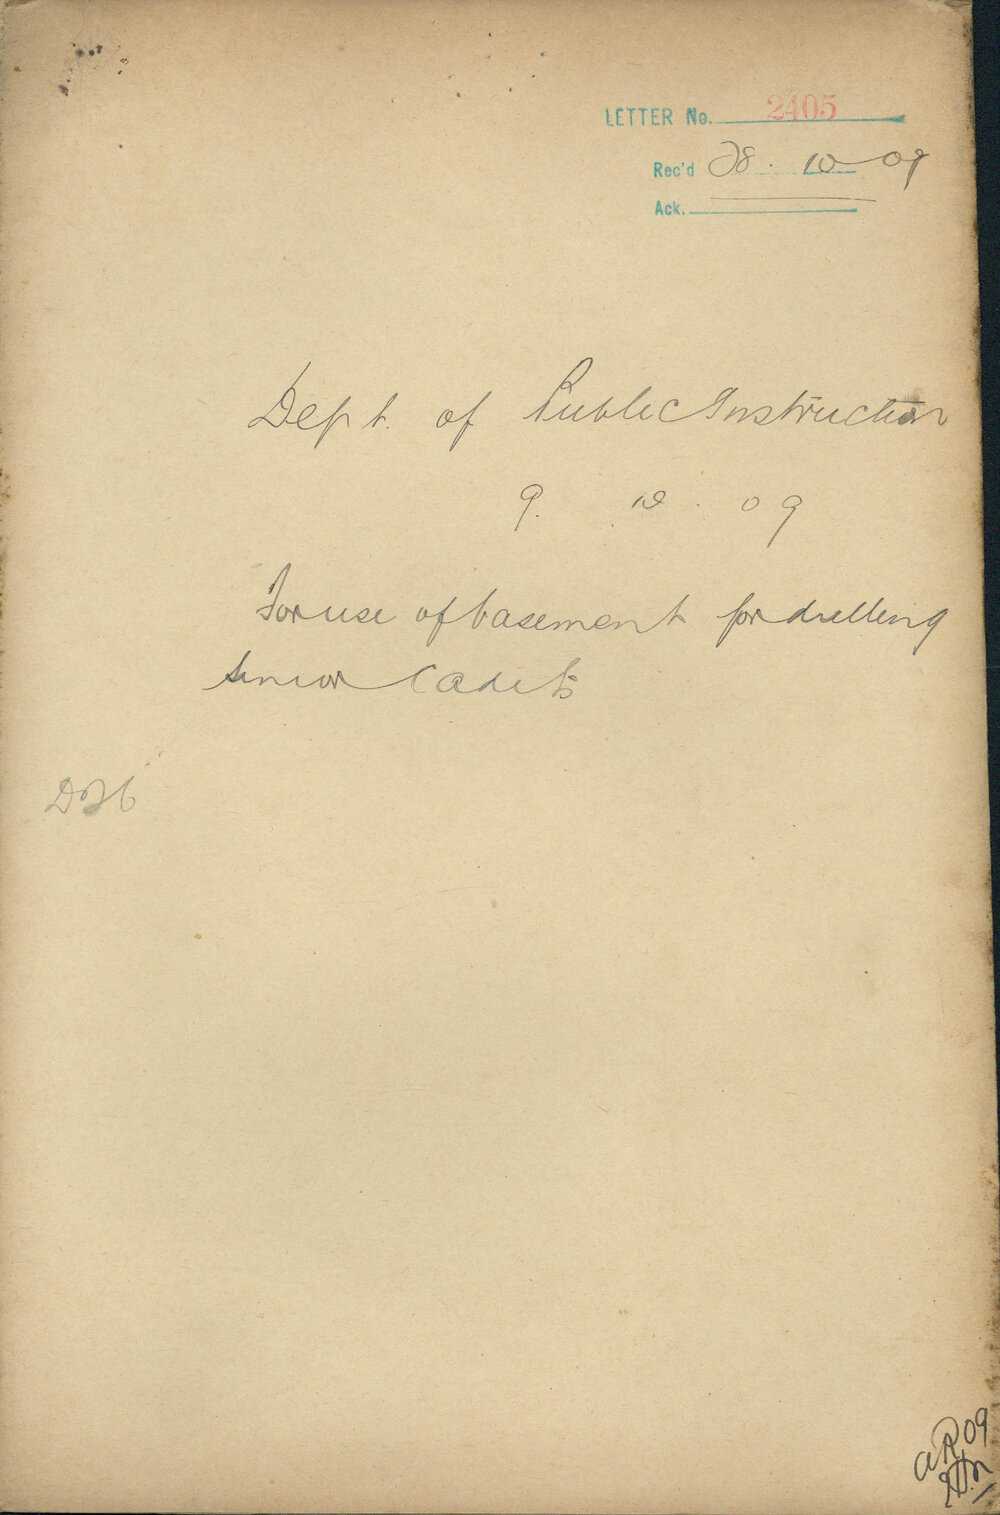 LETTER No. 2405
Rec'd 28. 10 09
Ack.
Dept. of Public Instruction
9. 10. 09
For use of basement for drilling
senior Cadets
aR 09